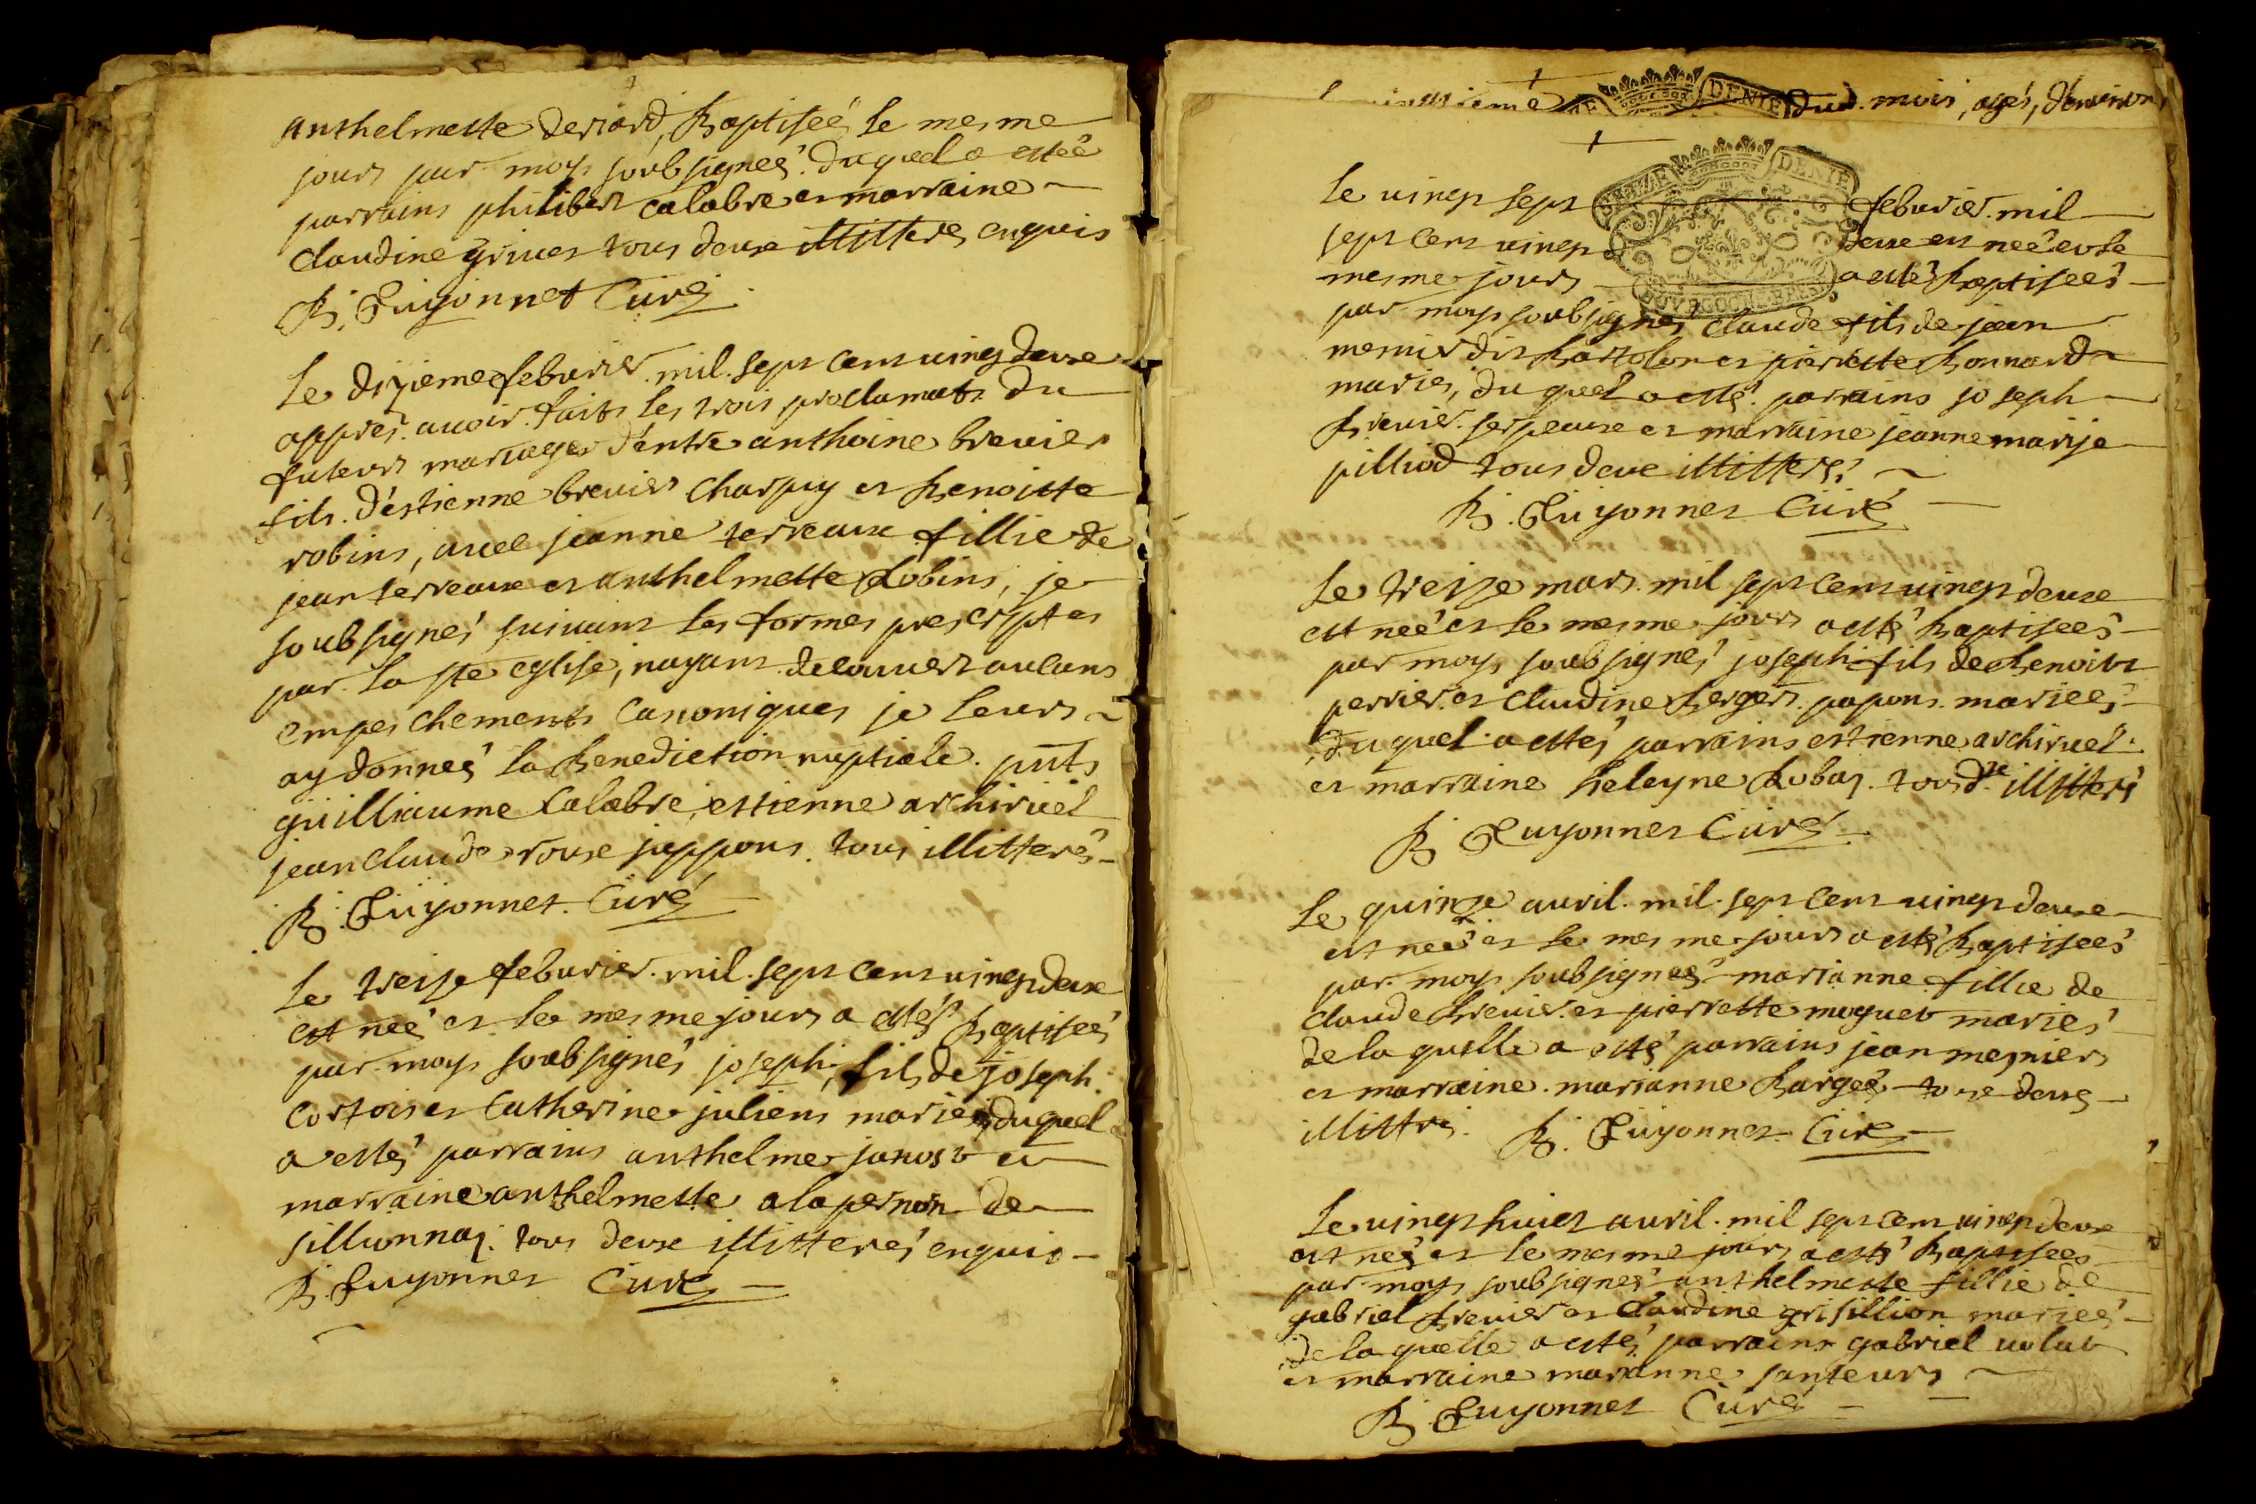 anthelmette deriard, Baptiseé le mesme
jours par moys soubsigneé. duquel a estée
parrains philibert calabre et marraine
claudine grives tous deux illitteres enquis
B. Guyonnet Curé
Le dixieme feburier. mil. sept cent vingt deux
apprés. avoir. faits les trois proclamats du
futeurs mariages d'entre anthoine brevier
fils. d'estienne brevier charpuy et Benoiste
robins, avec jeanne terreaux fillie de
jean terreaux et anthelmette Robins, je
soubsignés suivant les formes prescryptes
par la ste eglise, nayant decouvert aucuns
empeschements canoniques je leurs
ay donneé la Benediction nuptiale. pnts
guilliaume calabre, estienne archiruel
jean claude roux jappons. tous illitterés
B. Guyonnet. Curé
Le treize feburier. mil. sept cent vingt deux
est neé et le mesme jours a estés Baptiseé
par moys soubsignés joseph, fils de joseph
cortois et Catherine juliens mariés duquel
a estés parrains anthelme janost et
marraine anthelmette alapernon de
sillionnas. tous deux illitterés enquis
B. Guyonnet Curé
dud. mois, agés, denviron
SEIZE DENIE
Le vingt sept feburier. mil
sept cent vingt deux est neé et le
mesme jours a estés Baptiseés
par moys soubsignés claude fils de jean
mernier dit Bartolon et pierrette Bonnard
mariés, duquel a esté parrains joseph
Brevier. serpeaux et marraine jeanne marije
pilliod tous deux illitterés
B. Guyonnet Curé
Le treize mars. mil sept cent vingt deux
est neé et le mesme jours a estés Baptiseés
par moys soubsignés joseph fils de Benoits
perrier. et claudine Bergers. papons. marieés
duquel a estés parrains estienne archiruel.
et marraine heleyne Robas. tous dx illitterés
B Guyonnet Curé
Le quinze avril. mil. sept cent vingt deux
est neé et le mesme jours a estés Baptiseés
par moys soubsigneé marianne fillie de
claude Brevier. et pierrette moguet mariés
de la quelle a esté parrains jean mesniers
et marraine. marianne Bargeé tous deux
illittrés. B. Guyonnet Curé
Le vingt huict avril. mil sept cent vingt deux
est neé et le mesme jours a estés Baptiseés
par moys soubsigneé anthelmette fillie de
gabriel Brevier et Claudine grisillion marieés
de la quelle a estés parrains gabriel volut
et marraine marianne santeurs
B. Guyonnet Curé